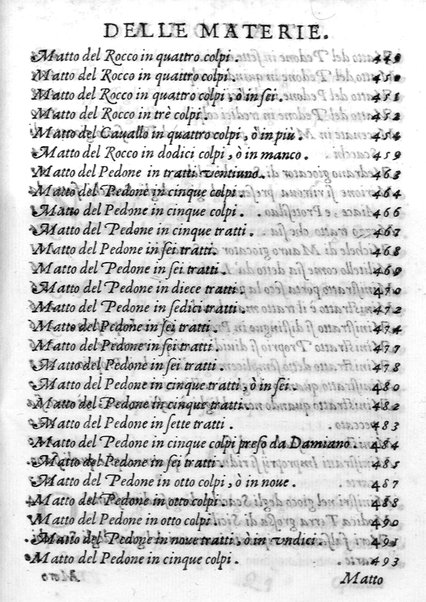 DELLE MATERIE.
Matto del Rocco in quattro colpi. 449
Matto del Rocco in quattro colpi. 450
Matto del Rocco in quattro colpi, ò in sei. 451
Matto del Rocco in trè colpi. 452
Matto del Cauallo in quattro colpi, ò in più. 454
Matto del Rocco in dodici colpi, ò in manco. 459
Matto del Pedone in tratti ventiuno. 463
Matto del Pedone in cinque colpi. 464
Matto del Pedone in cinque colpi. 466
Matto del Pedone in cinque tratti. 467
Matto del Pedone in sei tratti. 468
Matto del Pedone in sei tratti. 469
Matto del Pedone in diece tratti. 470
Matto del Pedone in sedici tratti. 472
Matto del Pedone in sei tratti. 474
Matto del Pedone in sei tratti. 477
Matto del Pedone in sei tratti. 478
Matto del Pedone in cinque tratti, ò in sei. 480
Matto del Pedone in cinque tratti. 482
Matto del Pedone in sette tratti. 483
Matto del Pedone in cinque colpi preso da Damiano. 484
Matto del Pedone in sei tratti. 485
Matto del Pedone in otto colpi, ò in noue. 487
Matto del Pedone in otto colpi. 488
Matto del Pedone in otto colpi. 490
Matto del Pedone in noue tratti, ò in vndici. 491
Matto del Pedone in cinque colpi. 493
Matto